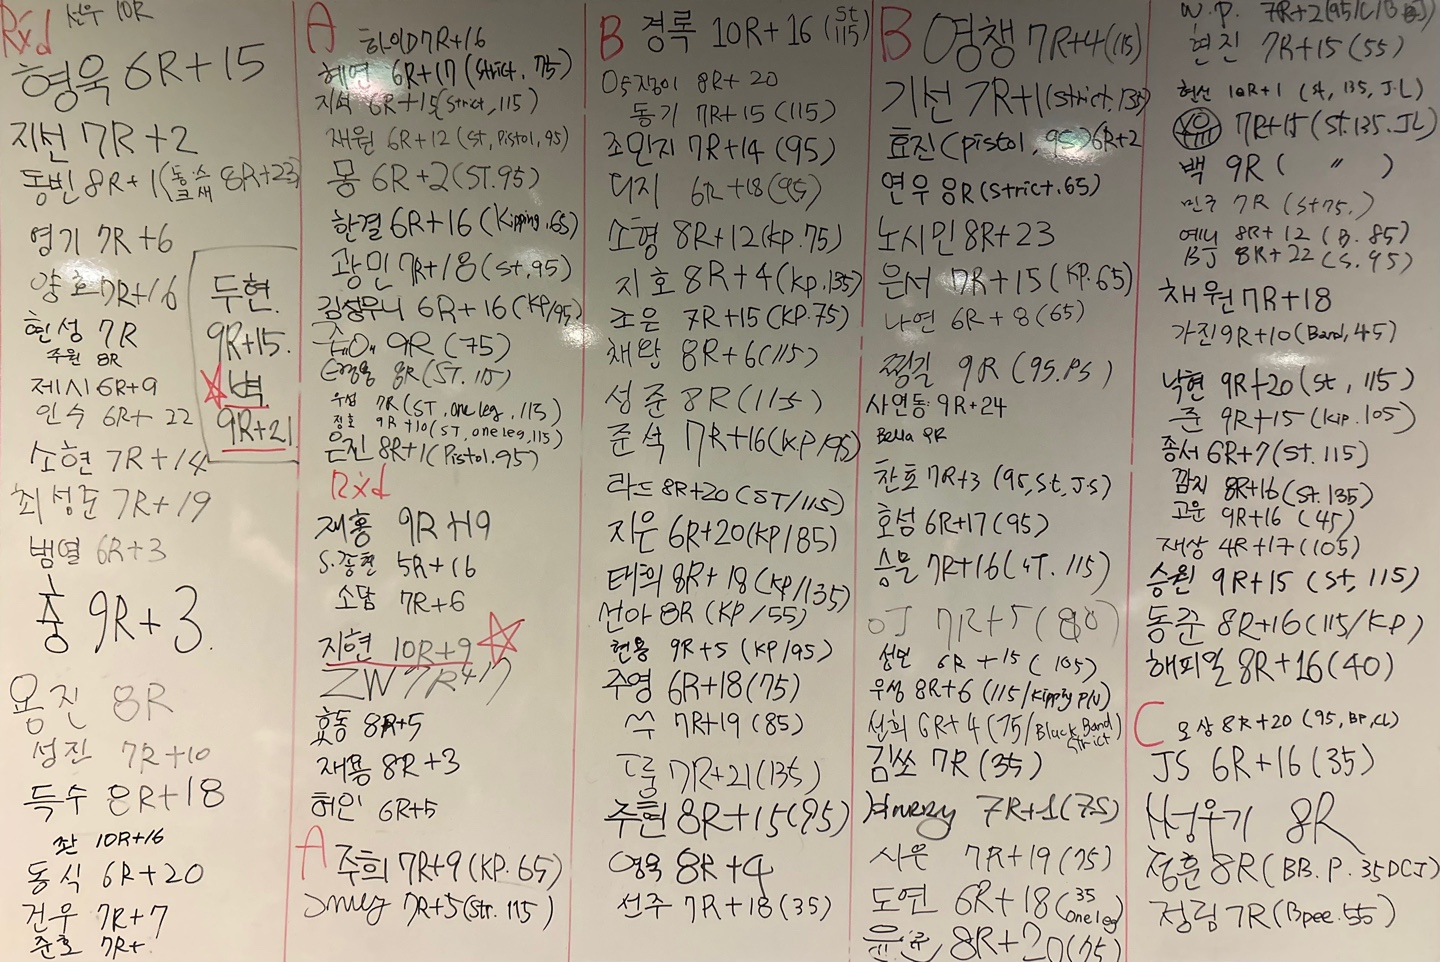 Rxd 선우 10R
형욱 6R+15
지선 7R+2
동빈 8R+1(동.스 크새 8R+23)
영기 7R+6
양호 7R+16
현성 7R
주원 8R
제시 6R+9
인수 6R+22
소현 7R+14
최성준 7R+19
범열 6R+3
총 9R+3
용진 8R
성진 7R+10
득수 8R+18
좌 10R+16
동식 6R+20
건우 7R+7
준호 7R+
두현.
9R+15.
벽
9R+21
A 하이D 7R+16
혜연 6R+17 (Strict. 75)
지석 6R+15(Strict, 115)
재원 6R+12 (St, Pistol, 95)
몽 6R+2(ST.95)
한결 6R+16 (Kipping.65)
광민 7R+18(St,95)
김성우니 6R+16(KP/95)
9R (75)
8R(ST. 115)
우섭 7R(ST, one leg, 115)
정호 9R+10(ST, one leg, 115)
은진 8R+1(Pistol.95)
Rxd
재홍 9R+19
S.종현 5R+16
소담 7R+6
지현 10R+9
ZW 7R+17
효동 8R+5
재용 8R+3
허인 6R+5
A 주희 7R+9(KP.65)
7R+5(Str. 115)
B 경록 10R+16 (St 115)
8R+20
동기 7R+15 (115)
조민지 7R+14 (95)
더지 6R+18(95)
소형 8R+12(KP.75)
지호 8R+4(KP.135)
조은 7R+15(KP.75)
채완 8R+6(115)
성준 8R(115)
준석 7R+16(KP/95)
라드 8R+20(ST/115)
지은 6R+20(KP/85)
태희 8R+18(KP/135)
선아 8R (KP/55)
현용 9R+5 (KP/95)
주영 6R+18(75)
쓱 7R+19 (85)
드룹 7R+21(135)
주현 8R+15(95)
영욱 8R+4
선주 7R+18(35)
B 영챙 7R+4(115)
기선 7R+1(Strict.135)
효진(pistol, 95)6R+2
연우 8R(Strict.65)
노시민 8R+23
은서 7R+15(KP.65)
나연 6R+8(65)
찡길 9R (95.PS)
사연동 9R+24
Bella 9R
찬호 7R+3 (95,St,J.S)
호섭 6R+17(95)
승물 7R+16(ST. 115)
OJ 7R+5(80)
성민 6R+15 (105)
우성 8R+6 (115/Kipping P/U)
선희 6R+4(75/Black Band Strict)
김쏘 7R (35)
Henery 7R+1(75)
시은 7R+19 (75)
도연 6R+18(35 one leg)
8R+20(75)
W.P. 7R+2(95/C/B
현진 7R+15(55)
현선 10R+1 (st, 135, J.L)
7R+15(St.135.JL)
백 9R ( 〃 )
민구 7R (St75.)
예니 8R+12 (B. 85)
BJ 8R+22 (S.95)
채원 7R+18
가진 9R+10(Band,45)
낙현 9R+20(St, 115)
준 9R+15(Kip.105)
종서 6R+7(St.115)
깜지 8R+16(St.135)
고운 9R+16 (45)
재상 4R+17(105)
승원 9R+15 (St, 115)
동준 8R+16(115/KP)
해피일 8R+16(40)
C 모상 8R+20 (95,BP,CL)
JS 6R+16(35)
H성우기 8R
정훈 8R(BB.P.35DCJ)
정림 7R(Bpee.55)